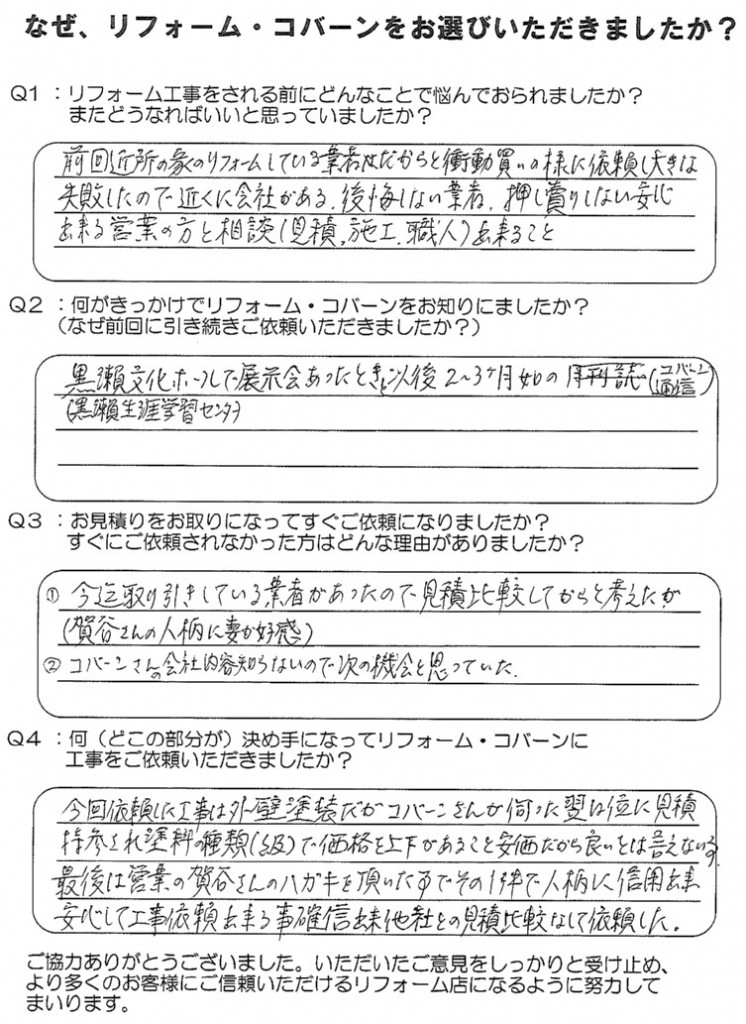 なぜ、リフォーム・コバーンをお選びいただきましたか？
Q1 ：リフォーム工事をされる前にどんなことで悩んでおられましたか？
またどうなればいいと思っていましたか？
前回近所の家のリフォームしている業者だからと衝動買いの様に依頼し大きな
失敗したので近くに会社がある、後悔しない業者、押し賣りしない安心
出来る営業の方と相談(見積、施工、職人)出来ること
Q2 ：何がきっかけでリフォーム・コバーンをお知りにましたか？
（なぜ前回に引き続きご依頼いただきましたか？）
黒瀬文化ホールで展示会あったときと以後2～3ヶ月毎の月刊誌(コバーン通信)
(黒瀬生涯学習センター)
Q3 ：お見積りをお取りになってすぐご依頼になりましたか？
すぐにご依頼されなかった方はどんな理由がありましたか？
① 今迄取り引きしている業者があったので見積比較してからと考えたが
(賀谷さんの人柄に妻が好感)
② コバーンさんの会社内容知らないので次の機会と思っていた.
Q4 ：何（どこの部分が）決め手になってリフォーム・コバーンに
工事をご依頼いただきましたか？
今回依頼した工事は外壁塗装だがコバーンさんが伺った翌日位に見積
持参され塗料の種類(級)で価格も上下があること安価だから良いとは言えない
最後は営業の賀谷さんのハガキを頂いた事でその1件で人柄に信用出来
安心して工事依頼出来る事確信出来他社との見積比較なしで依頼した.
ご協力ありがとうございました。いただいたご意見をしっかりと受け止め、
より多くのお客様にご信頼いただけるリフォーム店になるように努力して
まいります。